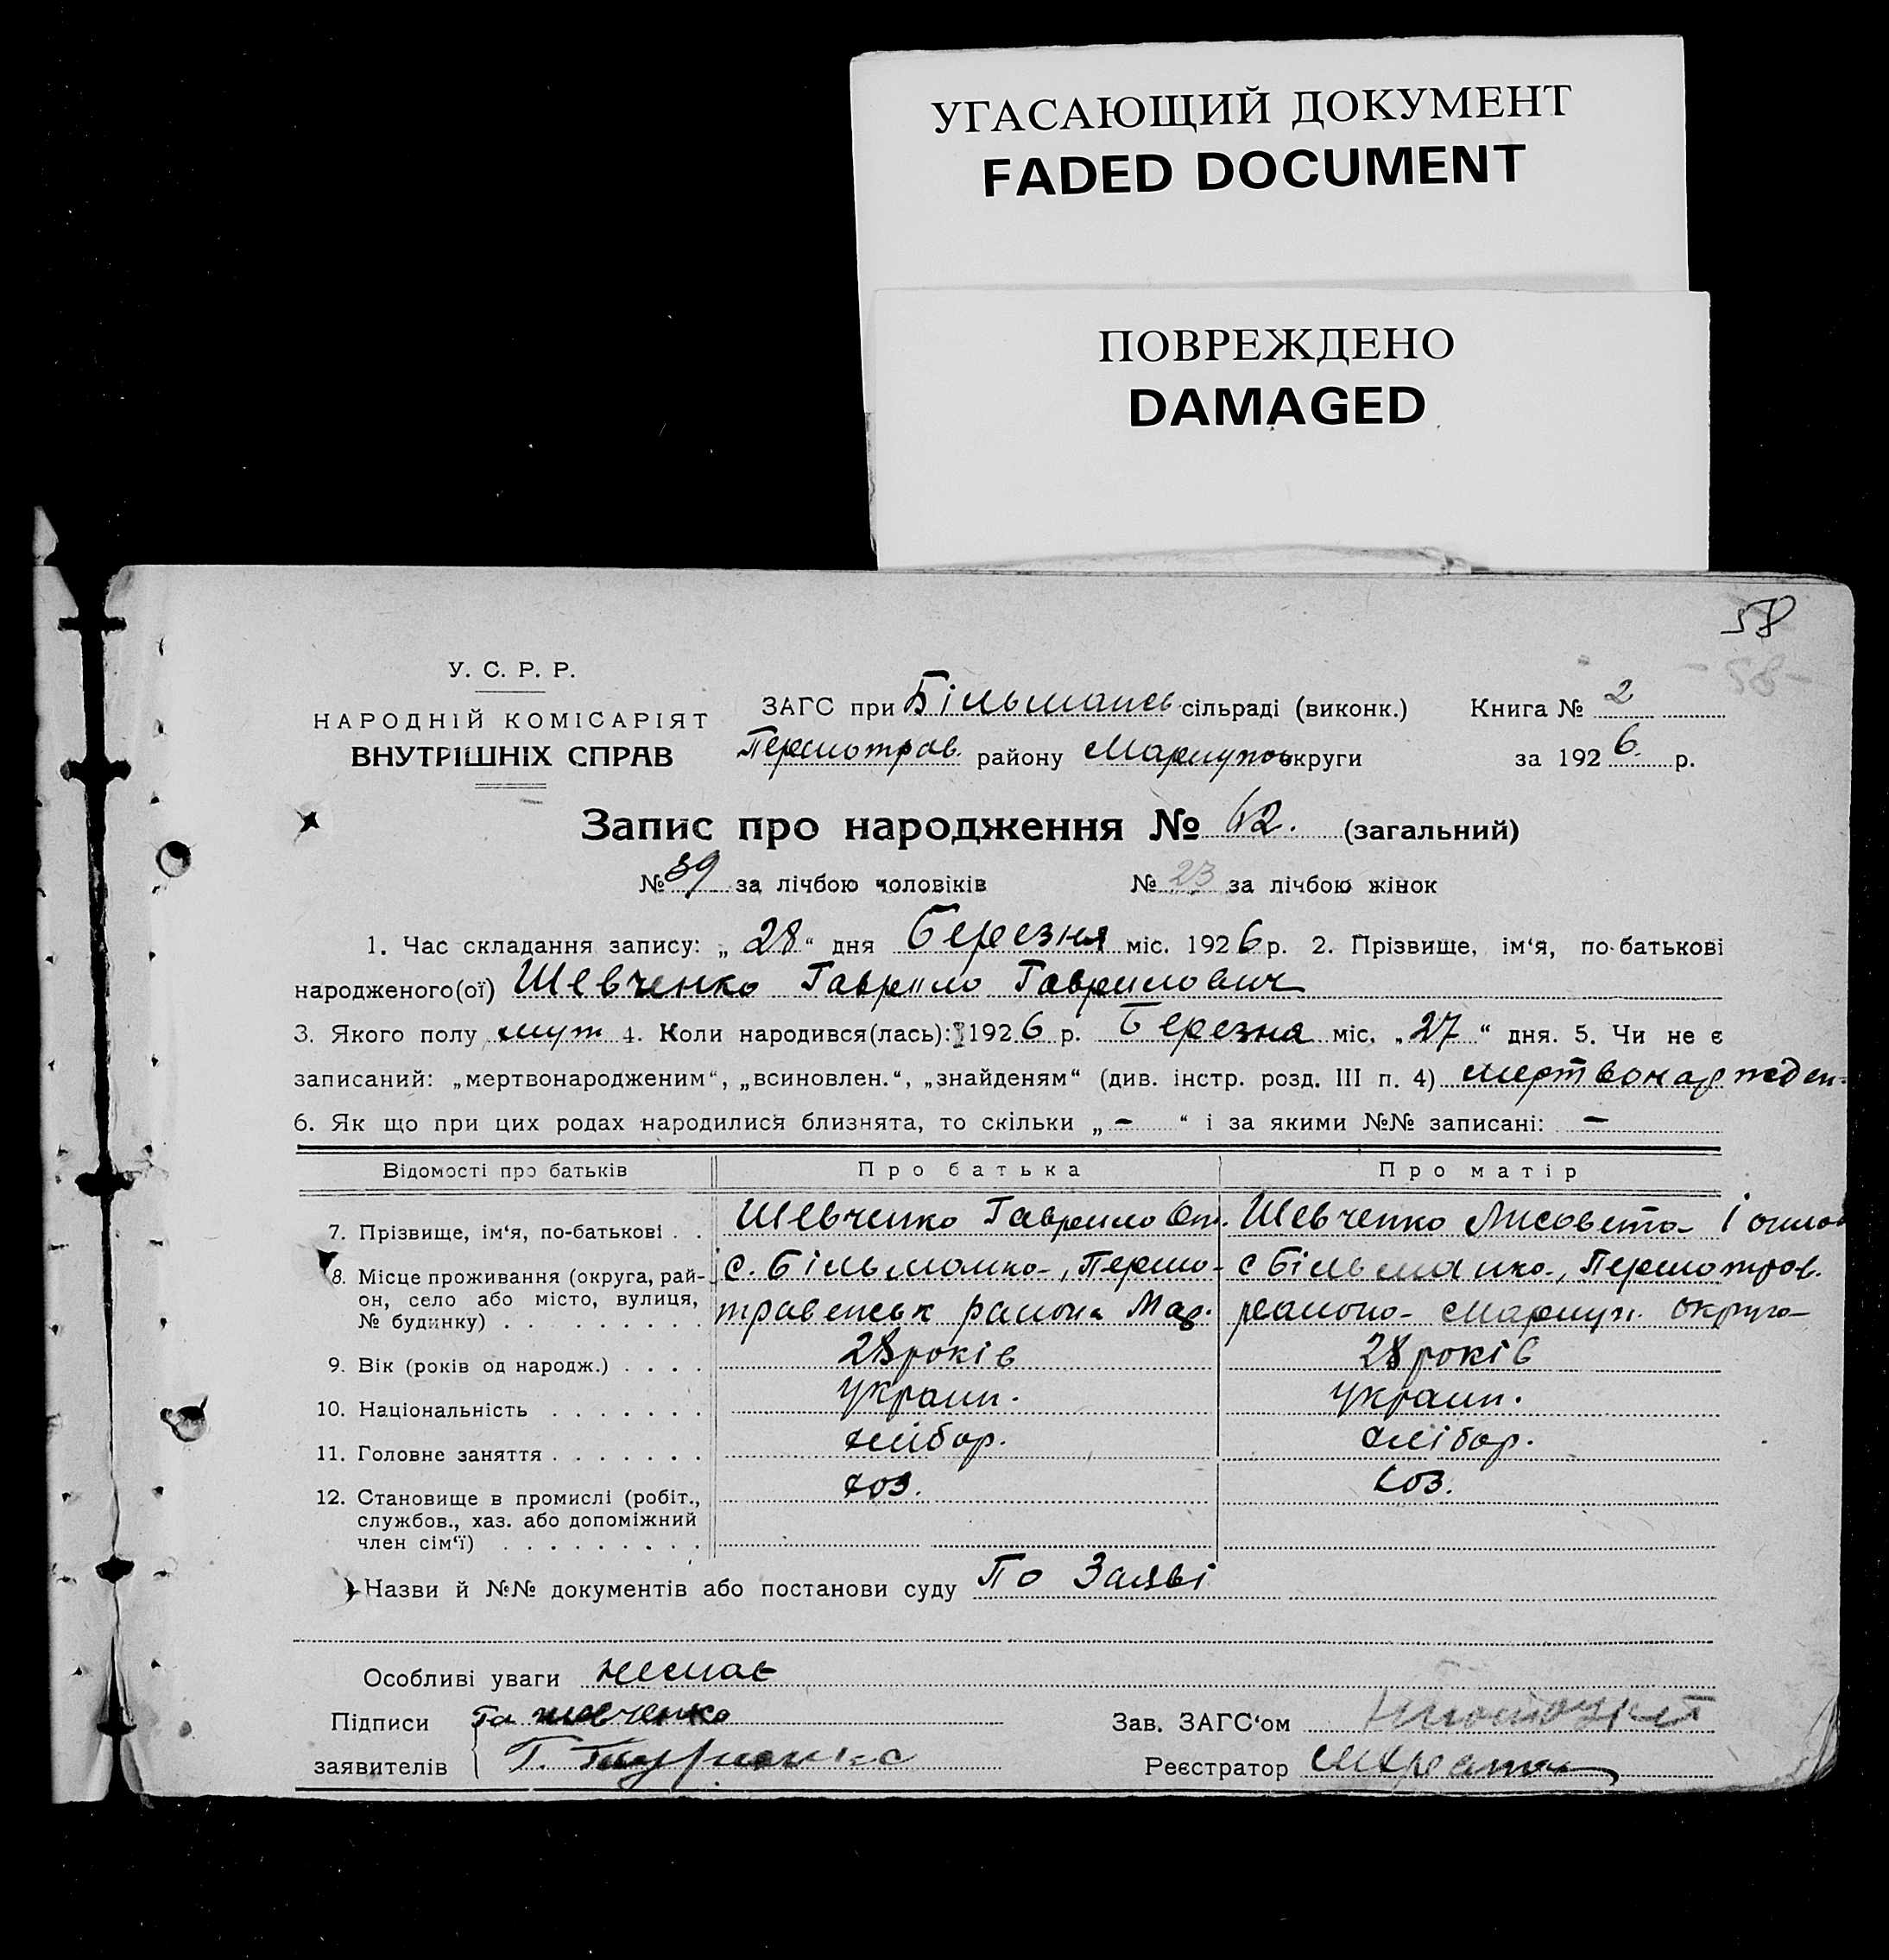 УГАСАЮЩИЙ ДОКУМЕНТ
FADED DOCUMENT
ПОВРЕЖДЕНО
DAMAGED
58
-58-
У. С. Р. Р.
НАРОДНІЙ КОМІСАРІЯТ
ВНУТРІШНІХ СПРАВ
ЗАГС при Більмансь сільраді (виконк.) Книга № 2
Першотрав. району Маріупо округи за 1926 р.
Запис про народження № 62. (загальний)
№ 39 за лічбою чоловіків № 23 за лічбою жінок
1. Час складання запису: „28“ дня Березня міс. 1926 р. 2. Прізвище, ім‘я, по-батькові
народженого(ої) Шевченко Гаврило Гаврилович
3. Якого полу муж 4. Коли народився(лась): 1926 р. Березня міс. „27“ дня. 5. Чи не є
записаний: „мертвонародженим“, „всиновлен.“, „знайденям“ (див. інстр. розд. III п. 4) мертвонарожден-
6. Як що при цих родах народилися близнята, то скільки „-“ і за якими №№ записані: -
Відомості про батьків Про батька Про матір
7. Прізвище, ім‘я, по-батькові . . Шевченко Гаврило Шевченко Лисовета
8. Місце проживання (округа, рай- с. Більманка, Першо- с Більманка, Першотрав.
он, село або місто, вулиця, травенськ района Мар. района Мариуп. округа
№ будинку) . . . . . . . . .
9. Вік (років од народж.) . . . . 28 років 28 років
10. Національність . . . . . . . украин. украин.
11. Головне заняття . . . . . . . хлібор. хлібор.
12. Становище в промислі (робіт., хоз. хоз.
службов., хаз. або допоміжний
член сім‘ї) . . . . . . . . .
Назви й №№ документів або постанови суду По Заяві
Особливі уваги немає
Підписи Га шевченко Зав. ЗАГС‘ом
заявителів Г. Реєстратор